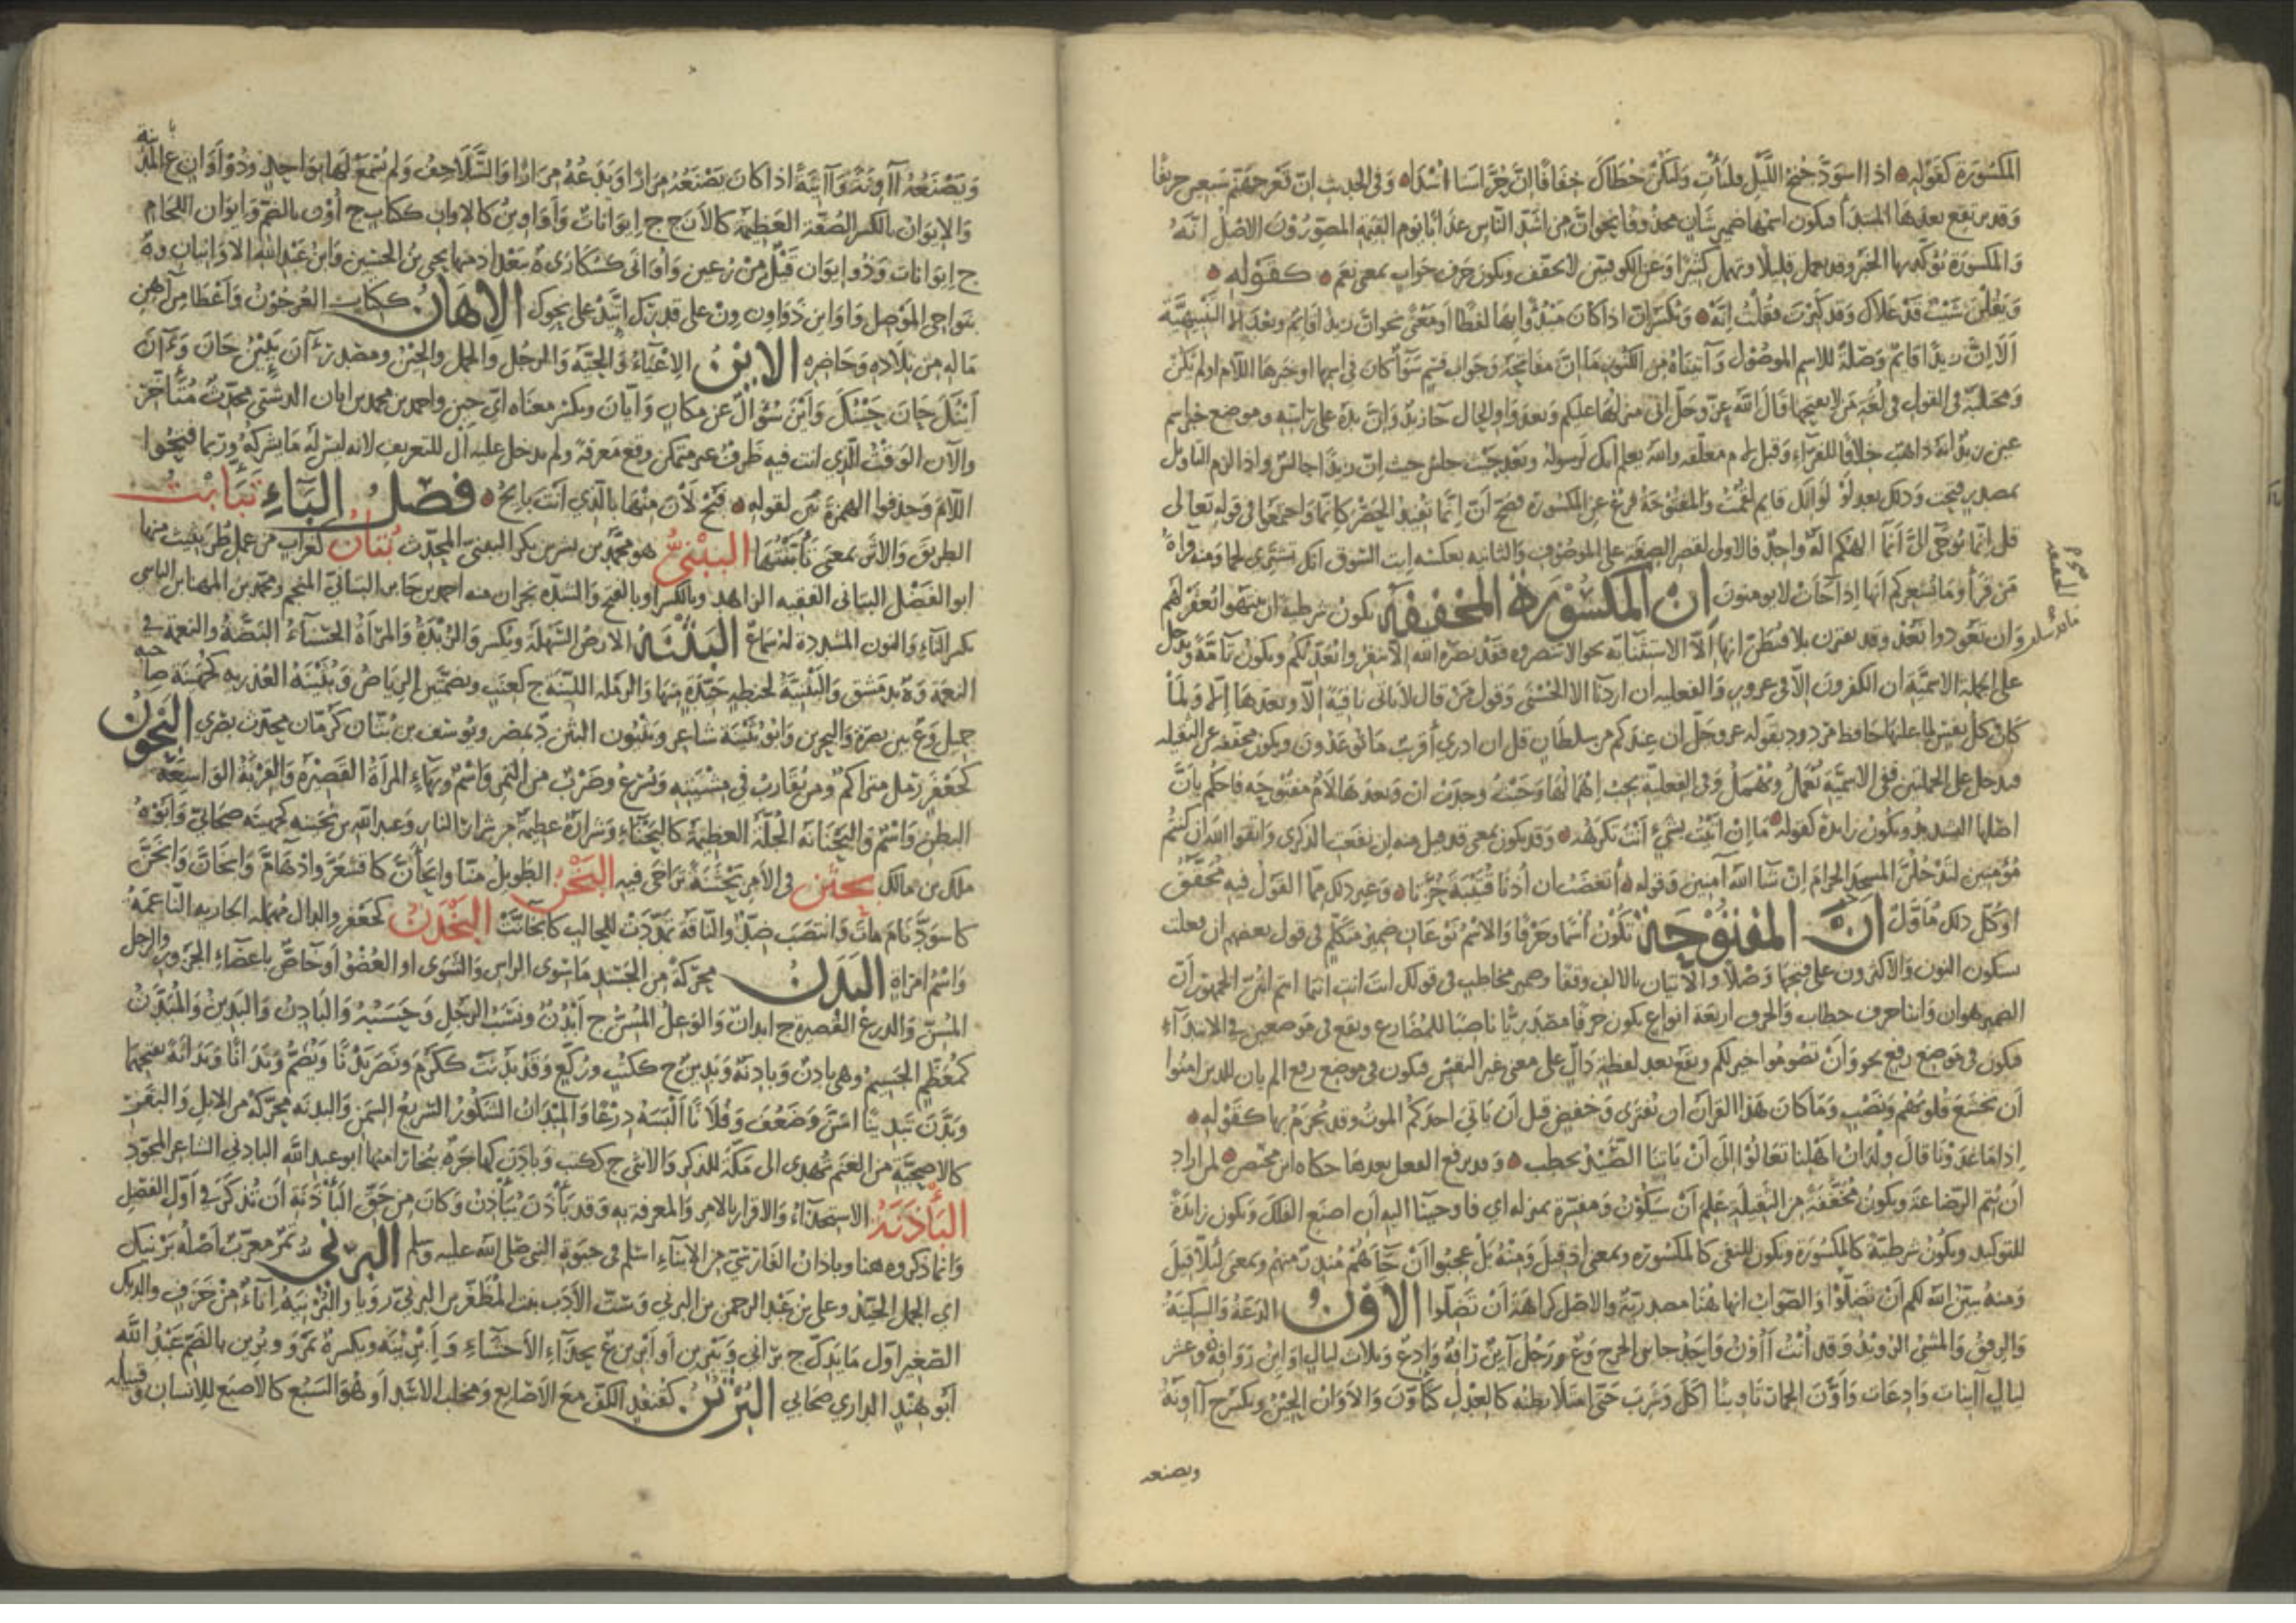 المكسورة كقوله اذا اسود جنح الليل فلتأت ولتكن خطاك خفافا ان حراسنا اسدا وفى الحديث ان قعر جهنم سبعين خريفا
وقد يرتفع بعدها المبتدا فيكون اسمها ضمير شان محذوفا نحو ان من اشد الناس عذابا يوم القيمة المصورون الاصل انه
والمكسورة يؤكد بها الخبر وقد تعمل قليلا وتهمل كثيرا وعن الكوفيين لا تخفف وتكون حرف جواب بمعنى نعم كقوله
ويقلن شيب قد علاك وقد كبرت فقلت انه وتكسر ان اذا كان مبدوا بها لفظا او معنى نحو ان زيدا قايم وبعد الا التنبيهية
الا ان زيدا قايم وصلة للاسم الموصول وآتيناه من الكنوز ما ان مفاتحه وجواب قسم سوآ كان فى اسمها او خبرها اللام او لم يكن
ومحكية فى القول فى لغة من لا يفتحها قال الله عز وجل انى منزلها عليكم وبعد واو الحال جا زيد وان يده على راسه وموضع خبر اسم
عين زيد انه ذاهب خلافا للفراء وقبل لام معلقة والله يعلم انك لرسوله وبعد حيث اجلس حيث ان زيدا جالس واذا لزم التاويل
بمصدر فتحت وذلك بعد لو لو انك قايم لقمت والمفتوحة فرع عن المكسورة فصح ان انما تفيد الحصر كانما واجتمعا فى قوله تعالى
قل انما يوحى الى انما الهكم اله واحد فالاول لقصر الصفة على الموصوف والثانية بعكسه ايت السوق انك تشترى لحما ومنه قراة
من قرا وما يشعركم انها اذا جات لا يومنون ان المكسورة المخففة تكون شرطية ان ينتهوا يغفر لهم
وان تعودوا نعد وقد تقترن بلا فتظن انها الا الاستثنائية نحو الا تنصروه فقد نصره الله الا تنفروا يعذبكم وتكون نافية وتدخل
على الجملة الاسمية ان الكفرون الا فى غرور والفعلية ان اردنا الا الحسنى وقول من قال لا تاتى نافية الا وبعدها الا او لما
كان كل نفس لما عليها حافظ مردود بقوله عز وجل ان عندكم من سلطان قل ان ادري أقرب ما توعدون وتكون مخففة عن الثقيلة
فتدخل على الجملتين ففى الاسمية تعمل وتهمل وفى الفعلية يجب اهمالها وحيث وجدت ان وبعدها لام مفتوحة فاحكم بان
اصلها التشديد وتكون زايدة كقوله ما ان اتيت بشيء انت تكرهه وقد تكون بمعنى قد قيل منه ان نفعت الذكرى واتقوا الله ان كنتم
مؤمنين لتدخلن المسجد الحرام ان شا الله آمنين وقوله أتغضب ان أذنا قتيبة حزتا وغير ذلك مما القول فيه محقق
او كل ذلك مأول أن المفتوحة تكون اسما وحرفا والاسم نوعان ضمير متكلم فى قول بعضهم ان فعلت
بسكون النون والاكثرون على فتحها وصلا والاتيان بالالف وقفا وضمير مخاطب فى قولك انت انت انتما انتم انتن الجمهور ان
الضمير هو ان والتا حرف خطاب والحرف اربعة انواع يكون حرفا مصدريا ناصبا للمضارع ويقع فى موضعين فى الابتداء
فيكون فى موضع رفع نحو وان تصوموا خير لكم ويقع بعد لفظة دال على معنى غير اليقين فيكون فى موضع رفع الم يان للذين امنوا
أن تخشع قلوبهم ونصب وما كان هذا القرآن ان يفترى وخفض قبل أن ياتى احدكم الموت وقد يجزم بها كقوله
اذا ما غدونا قال ولدان اهلنا تعالوا الى أن ياتنا الصيد نحطب وقد يرفع الفعل بعدها حكاه ابن محيصن لمن اراد
أن يتم الرضاعة ويكون مخففة من الثقيلة علم أن سيكون ومفسرة بمنزلة اي فاوحينا اليه ان اصنع الفلك وتكون زايدة
للتوكيد ويكون شرطية كالمكسورة وتكون للنفى كالمكسورة وبمعنى اذ قيل ومنه بل عجبوا ان جاهم منذر منهم وبمعنى لئلا قيل
ومنه يبين الله لكم ان تضلوا والصواب انها هنا مصدرية والاصل كراهة ان تضلوا الاون الدعة والسكينة
والرفق والمشى الرويد وقد أنت أؤن واحد جانبى الخرج وع ورجل آين رافه وادع وثلاث ليال اواين روافه وعشر
ليال آينات وادعات واون الحمار تاوينا اكل وشرب حتى امتلا بطنه كالعدل كتاون والاوان الحين ويكسر ج آونة
ويصنعه
ويصنعه آونة وآئنة اذا كان يصنعه مرارا ويدعه مرارا والسلاحف ولم يسمع لها بواحد وذو اوان ع بالمدينة
والايوان بالكسر الصفة العظيمة كالازج ج ايوانات واواوين كالاوان ككتاب ج أون بالضم وايوان اللجام
ج ايوانات وذو ايوان قيل من رعين واوانى كسكارى ة ببغداد منها يحيى بن الحسين وابن عبد الله الاوانيان وة
بنواحى الموصل الاهان ككتاب العرجون واعطا من آهن
ماله من تلاده وحاضره الاين الاعياء والحية والرجل والحمل والحين ومصدر
اينك حان حينك واين سؤال عن مكان وايان ويكسر معناه اي حين واحمد بن محمد بن ابان الدشتى محدث متأخر
والآن الوقت الذي انت فيه ظرف غير متمكن وقع معرفة ولم تدخل عليه ال للتعريف لانه ليس له ما يشركه وربما فتحوا
اللام وحذفوا الهمزة كقوله فصل الباء تبابنت
الطريق والاثر بمعنى تأبنتها الببنى هو محمد بن بشر بن بكر الببنى المحدث بتان كغراب من عمل طريثيث منها
ابو الفضل البتانى الفقيه الزاهد وبالكسر او بالفتح والشد ة بحران منه احمد بن جابر البتانى المنجم
بكسر التاء والنون المشددة البثنة الارض السهلة ويكسر والزبدة والمرأة الحسناء البضة والنعمة فى
النعمة وة بدمشق والبثنية لحنطة جيدة منها والرملة اللينة ج كعنب وبضمتين الرياض وبثينة العذرية كجهينة صاحبة
جميل وع بين بصرة والبحرين وابو بثينة شاعر ويوسف بن بثان كرمان محدث بصرى البحون
كجعفر رمل متراكم ومن يقارب فى مشيته ويسرع وضرب من التمر واسم وبهاء المرأة القصيرة والقربة الواسعة
البطن واسم والبحنانة الجلة العظيمة كالبحناء وشرارة عظيمة من شرار النار وعبد الله بن بحينة كجهينة صحابى وابوه
ملك بن مالك بحثن فى الأمر بحثنة تراخى فيه البخن الطويل منا وابخأن كاقشعر وادهام وابخان وابخن
كاسود نام مات وانتصب ضد والناقة تمددت للحالب كابخانت البخدن كجعفر والدال مهملة الجارية الناعمة
واسم امرأة البدن محركة من الجسد ما سوى الراس والشوى او العضو او خاص باعضاء الجزور والرجل
المسن والدرع القصيرة ج ابدان والوعل المسن ج ابدن ونسب الرجل وحسبه والبادن والبدين والمبدن
كمعظم الجسيم وهى بادن وبادنة وبدين ج ككتب وركع وقد بدنت ككرم ونصر بدنا ويضم وبدانا وبدانة بفتحهما
وبدن تبدينا اسن وضعف وفلانا ألبسه درعا والمبدان الشكور السريع السمن والبدنة محركة من الابل والبقر
كالاضحية من الغنم تهدى الى مكة للذكر والانثى ج ككتب وبادن كهاجر ة ببخارا منها ابو عبد الله البادنى الشاعر المجود
البأذنة الاستحذاء والاقرار بالامر والمعرفة به وقد بأذن يبأذن وكان من حق البأذنة ان تذكر فى اول الفصل
وانما ذكروه هنا وباذان الفارسى من الابناء اسلم فى حيوة النبى صلى الله عليه وسلم البرنى تمر معرب اصله برنيك
اي الحمل الجيد وعلى بن عبد الرحمن بن البرنى وست الادب بنت المظفر بن البرنى رويا والبرنية اناء من خزف والديك
الصغير اول ما يدرك ج برانى ويبرين او ابرين ع بحذاء الاحساء وبرين بالضم عبد الله
ابو هند الدارى صحابى البرثن كقنفذ الكف مع الاصابع ومخلب الاسد او هو السبع كالاصبع للانسان وقبيلة